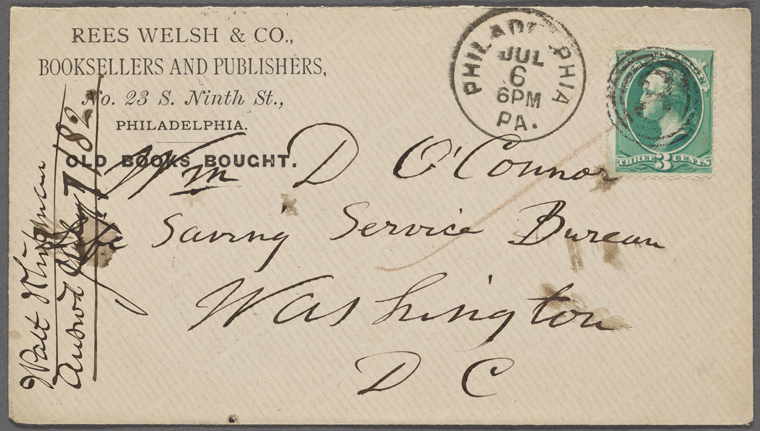 REES WELSH & CO.,
BOOKSELLERS AND PUBLISHERS,
No. 23 S. Ninth St.,
PHILADELPHIA.
OLD BOOKS BOUGHT.
PHILADELPHIA
JUL
6
6PM
PA.
THREE 3 CENTS
Wm D O'Connor
Life Saving Service Bureau
Washington
D C
Walt Whitman
Answd July 7 / 82